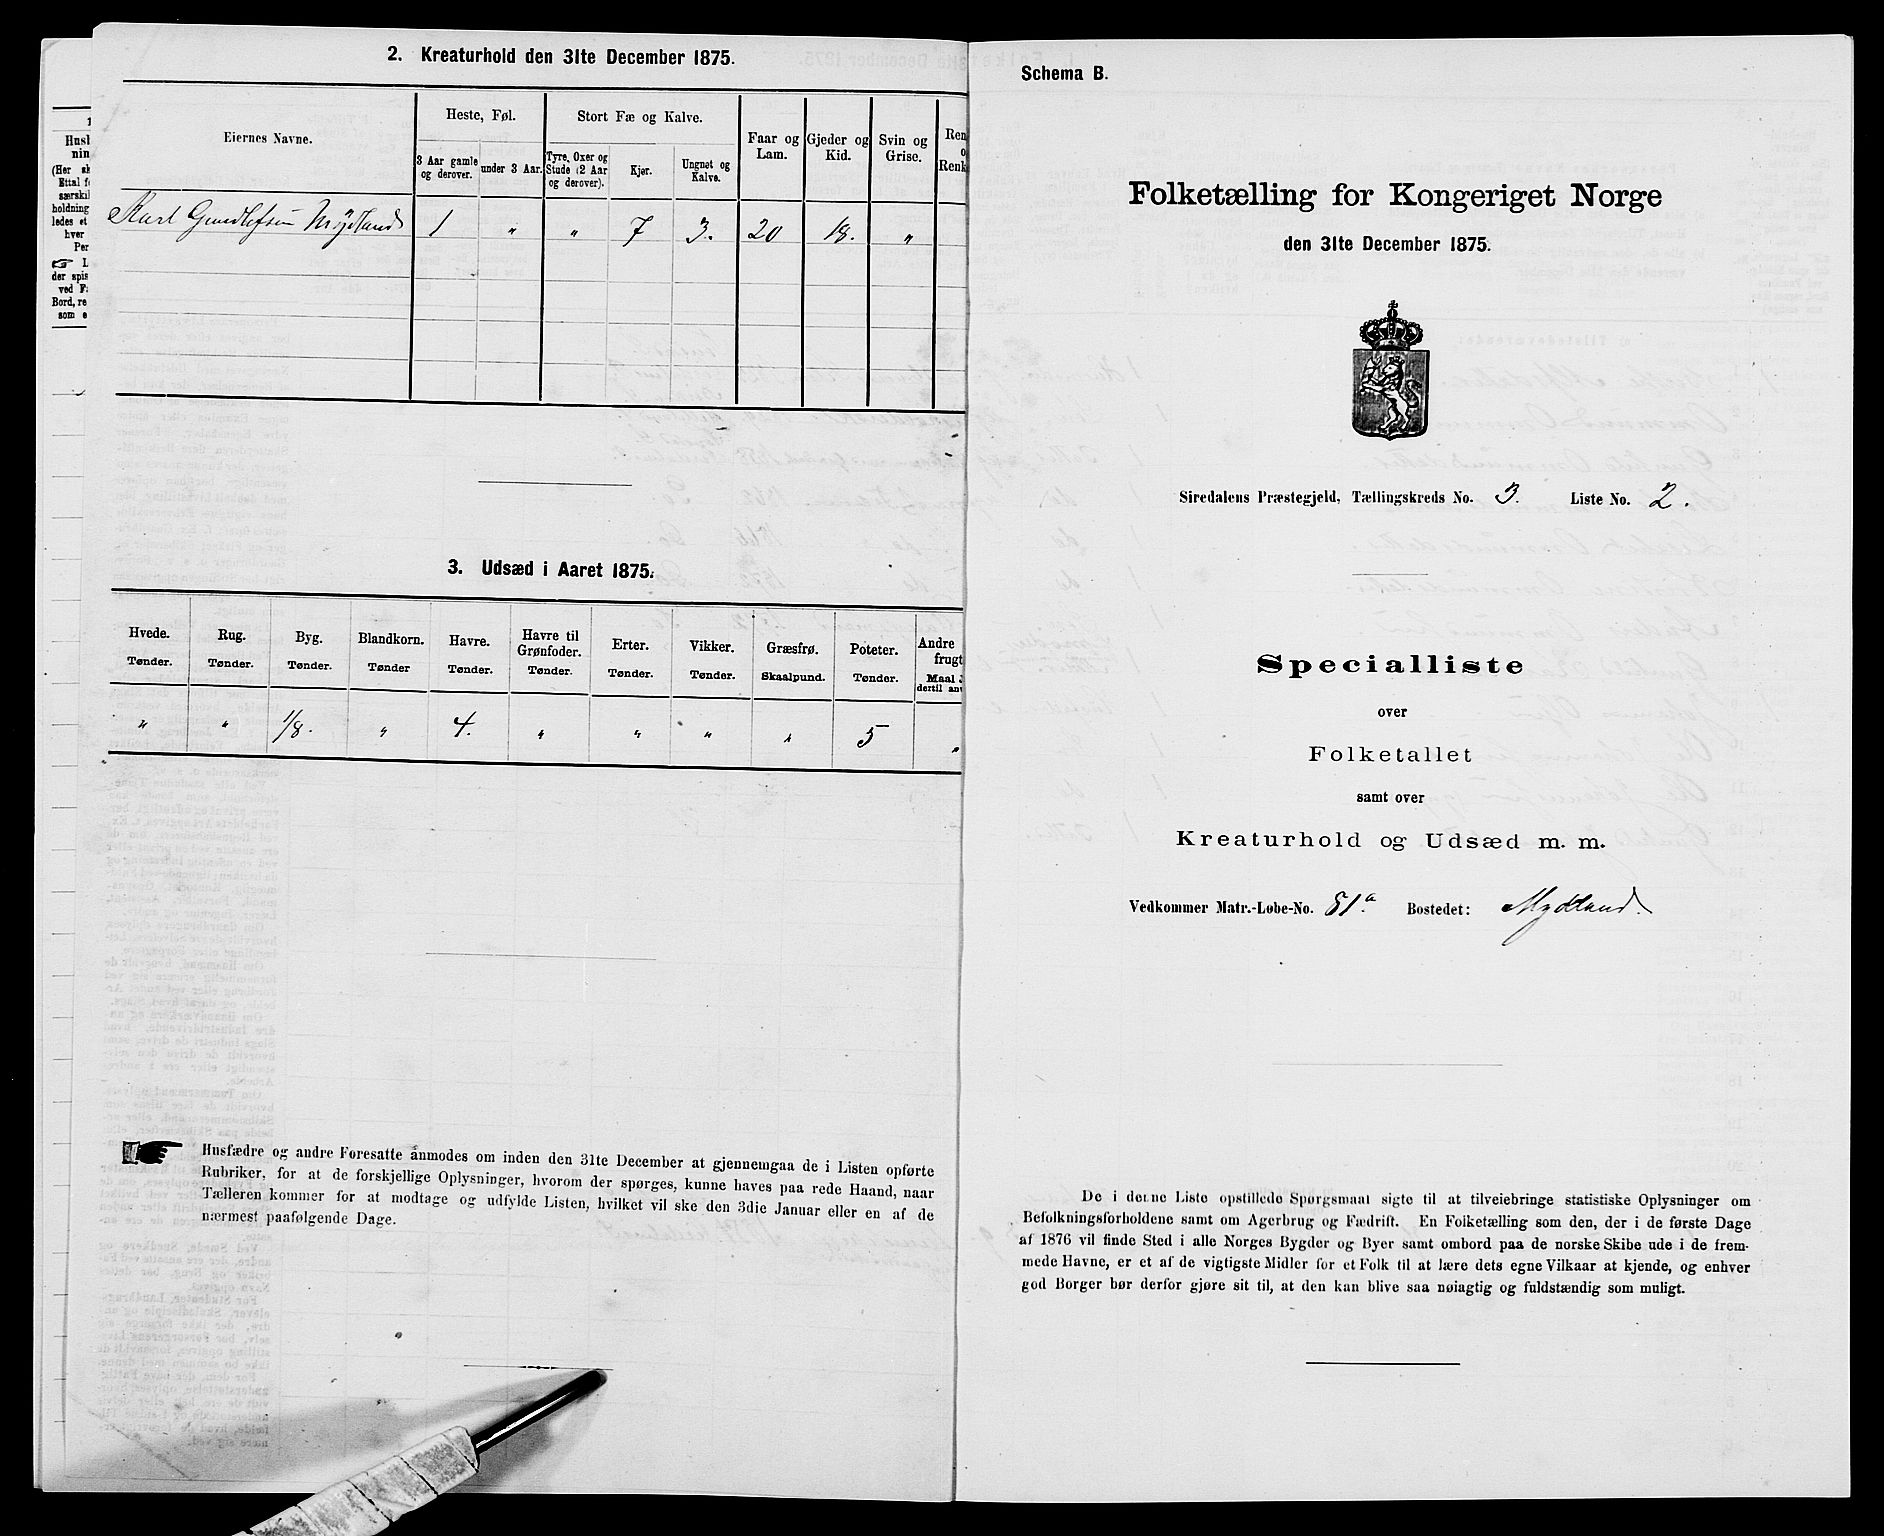 2. Kreaturhold den 31te December 1875.
Eiernes Navne.
Heste, Føl.
3 Aar gamle og derover.
under 3 Aar.
Stort Fæ og Kalve.
Tyre, Oxer og Stude (2 Aar og derover).
Kjør.
Ungnøt og Kalve.
Faar og Lam.
Gjeder og Kid.
Svin og Grise.
Ren
o
Renk
Karl Gundlefsen Mydland 1 " " 7 3. 20 18. "
3. Udsæd i Aaret 1875.
Hvede. Rug. Byg. Blandkorn. Havre. Havre til Grønfoder. Erter. Vikker. Græsfrø. Poteter. Andre frugt
Tønder. Tønder. Tønder. Tønder Tønder. Tønder. Tønder. Tønder. Skaalpund. Tønder. Maal
dertil anv
" " 1/8. " 4. " " " " 5 "
Husfædre og andre Foresatte anmodes om inden den 31te December at gjennemgaa de i Listen opførte
Rubriker, for at de forskjellige Oplysninger, hvorom der spørges, kunne haves paa rede Haand, naar
Tælleren kommer for at modtage og udfylde Listen, hvilket vil ske den 3die Januar eller en af de
nærmest paafølgende Dage.
Schema B.
Folketælling for Kongeriget Norge
den 31te December 1875.
Siredalens Præstegjeld, Tællingskreds No. 3. Liste No. 2.
Specialliste
over
Folketallet
samt over
Kreaturhold og Udsæd m. m.
Vedkommer Matr.-Løbe-No. 81a Bostedet: Mydland.
De i denne Liste opstillede Spørgsmaal sigte til at tilveiebringe statistiske Oplysninger om
Befolkningsforholdene samt om Agerbrug og Fædrift. En Folketælling som den, der i de første Dage
af 1876 vil finde Sted i alle Norges Bygder og Byer samt ombord paa de norske Skibe ude i de frem-
mede Havne, er et af de vigtigste Midler for et Folk til at lære dets egne Vilkaar at kjende, og enhver
god Borger bør derfor gjøre sit til, at den kan blive saa nøiagtig og fuldstændig som muligt.